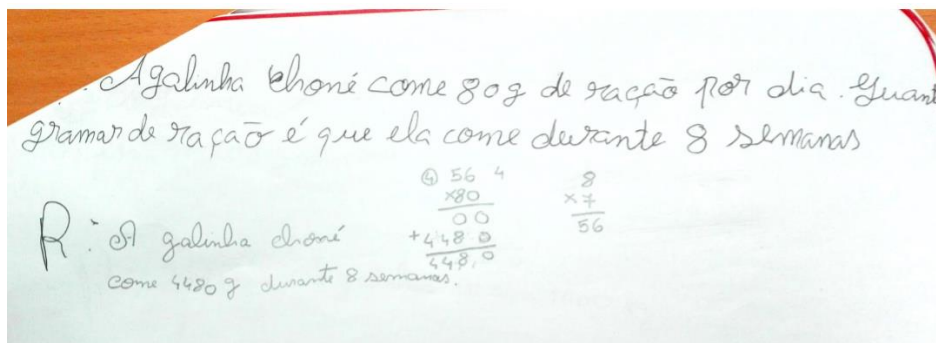 A galinha choné come 80g de ração por dia. Quant
gramas de ração é que ela come durante 8 semanas
④ 56 4
×80
00
+448 0
448,0
8
×7
56
R: A galinha choné
come 4480 g durante 8 semanas.